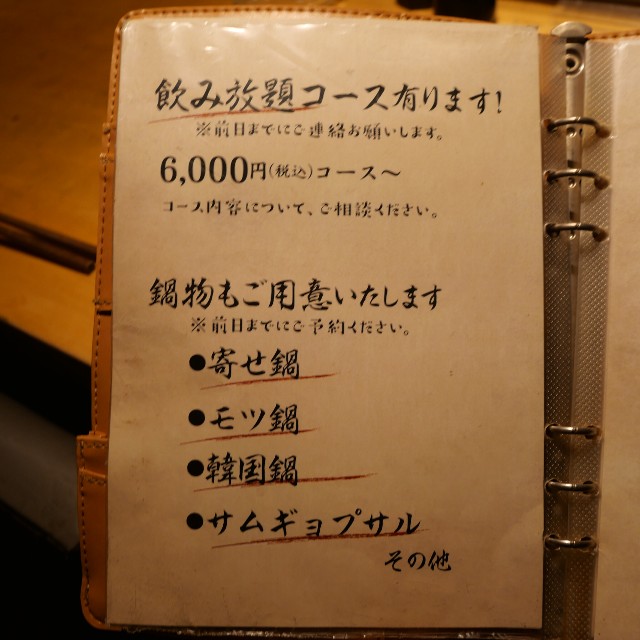 飲み放題コース有ります!
※前日までにご連絡お願いします。
6,000円(税込)コース〜
コース内容について、ご相談ください。
鍋物もご用意いたします
※前日までにご予約ください。
●寄せ鍋
●モツ鍋
●韓国鍋
●サムギョプサル
その他